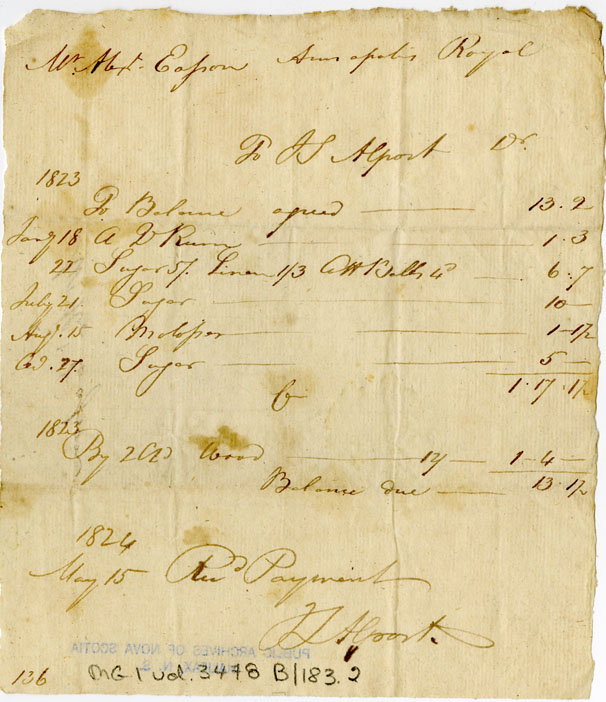 Mr. Alexr. Easson Annapolis Royal
To J S Alport Dr.
1823
To Balance agreed 13.2
Jany 18 A D Rum 1.3
22 Sugar 5/. Linen 1/3 4d 6.7
July 21 Sugar 10
Augt. 15 Molasses 1-1½
27 Sugar 5
1.17.1½
Cr
1823
By 2 Cd Wood 12/ 1-4-
Balance due 13.1½
1824
May 15 Recd Payment
J S Alport
PUBLIC ARCHIVES OF NOVA SCOTIA
HALIFAX N. S.
136 MG 1 vol. 3478 B/183.2